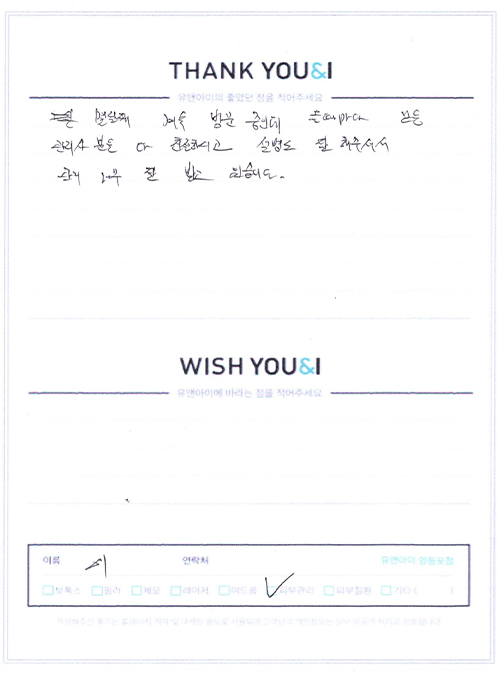 THANK YOU&I
유앤아이의 좋았던 점을 적어주세요
몇달째 계속 방문 중인데 올때마다 모든
관리사 분들 다 친절하시고 설명도 잘 해주셔서
관리 너무 잘 받고 있습니다.
WISH YOU&I
유앤아이에 바라는 점을 적어주세요
이름 연락처 유앤아이 영등포점
보톡스 필러 제모 레이저 여드름 피부관리 피부질환 기타 ( )